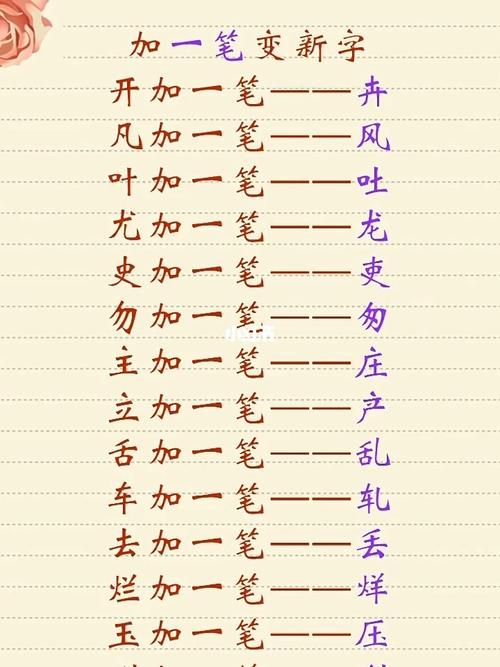 加一笔变新字
开加一笔——卉
凡加一笔——风
叶加一笔——吐
尤加一笔——龙
史加一笔——吏
勿加一笔——匆
主加一笔——庄
立加一笔——产
舌加一笔——乱
车加一笔——轧
去加一笔——丢
烂加一笔——烊
玉加一笔——压